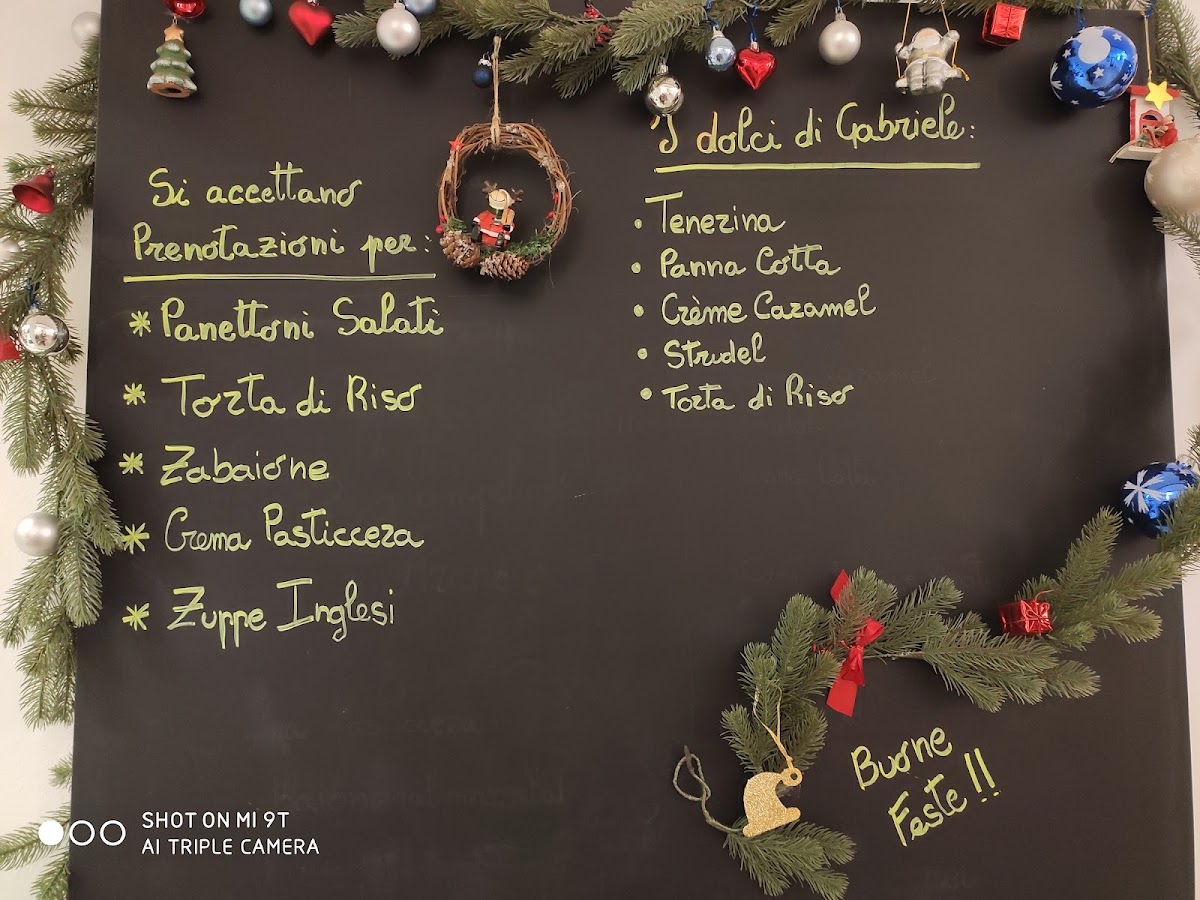 Si accettano
Prenotazioni per:
* Panettoni Salati
* Torta di Riso
* Zabaione
* Crema Pasticcera
* Zuppe Inglesi
I dolci di Gabriele:
• Tenerina
• Panna Cotta
• Crème Caramel
• Strudel
• Torta di Riso
Buone
Feste!!
SHOT ON MI 9T
AI TRIPLE CAMERA